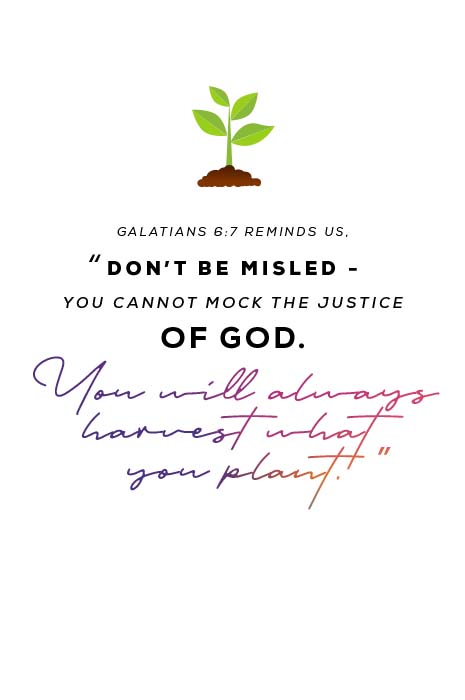 GALATIANS 6:7 REMINDS US,
“DON’T BE MISLED –
YOU CANNOT MOCK THE JUSTICE
OF GOD.
You will always
harvest what
you plant.”